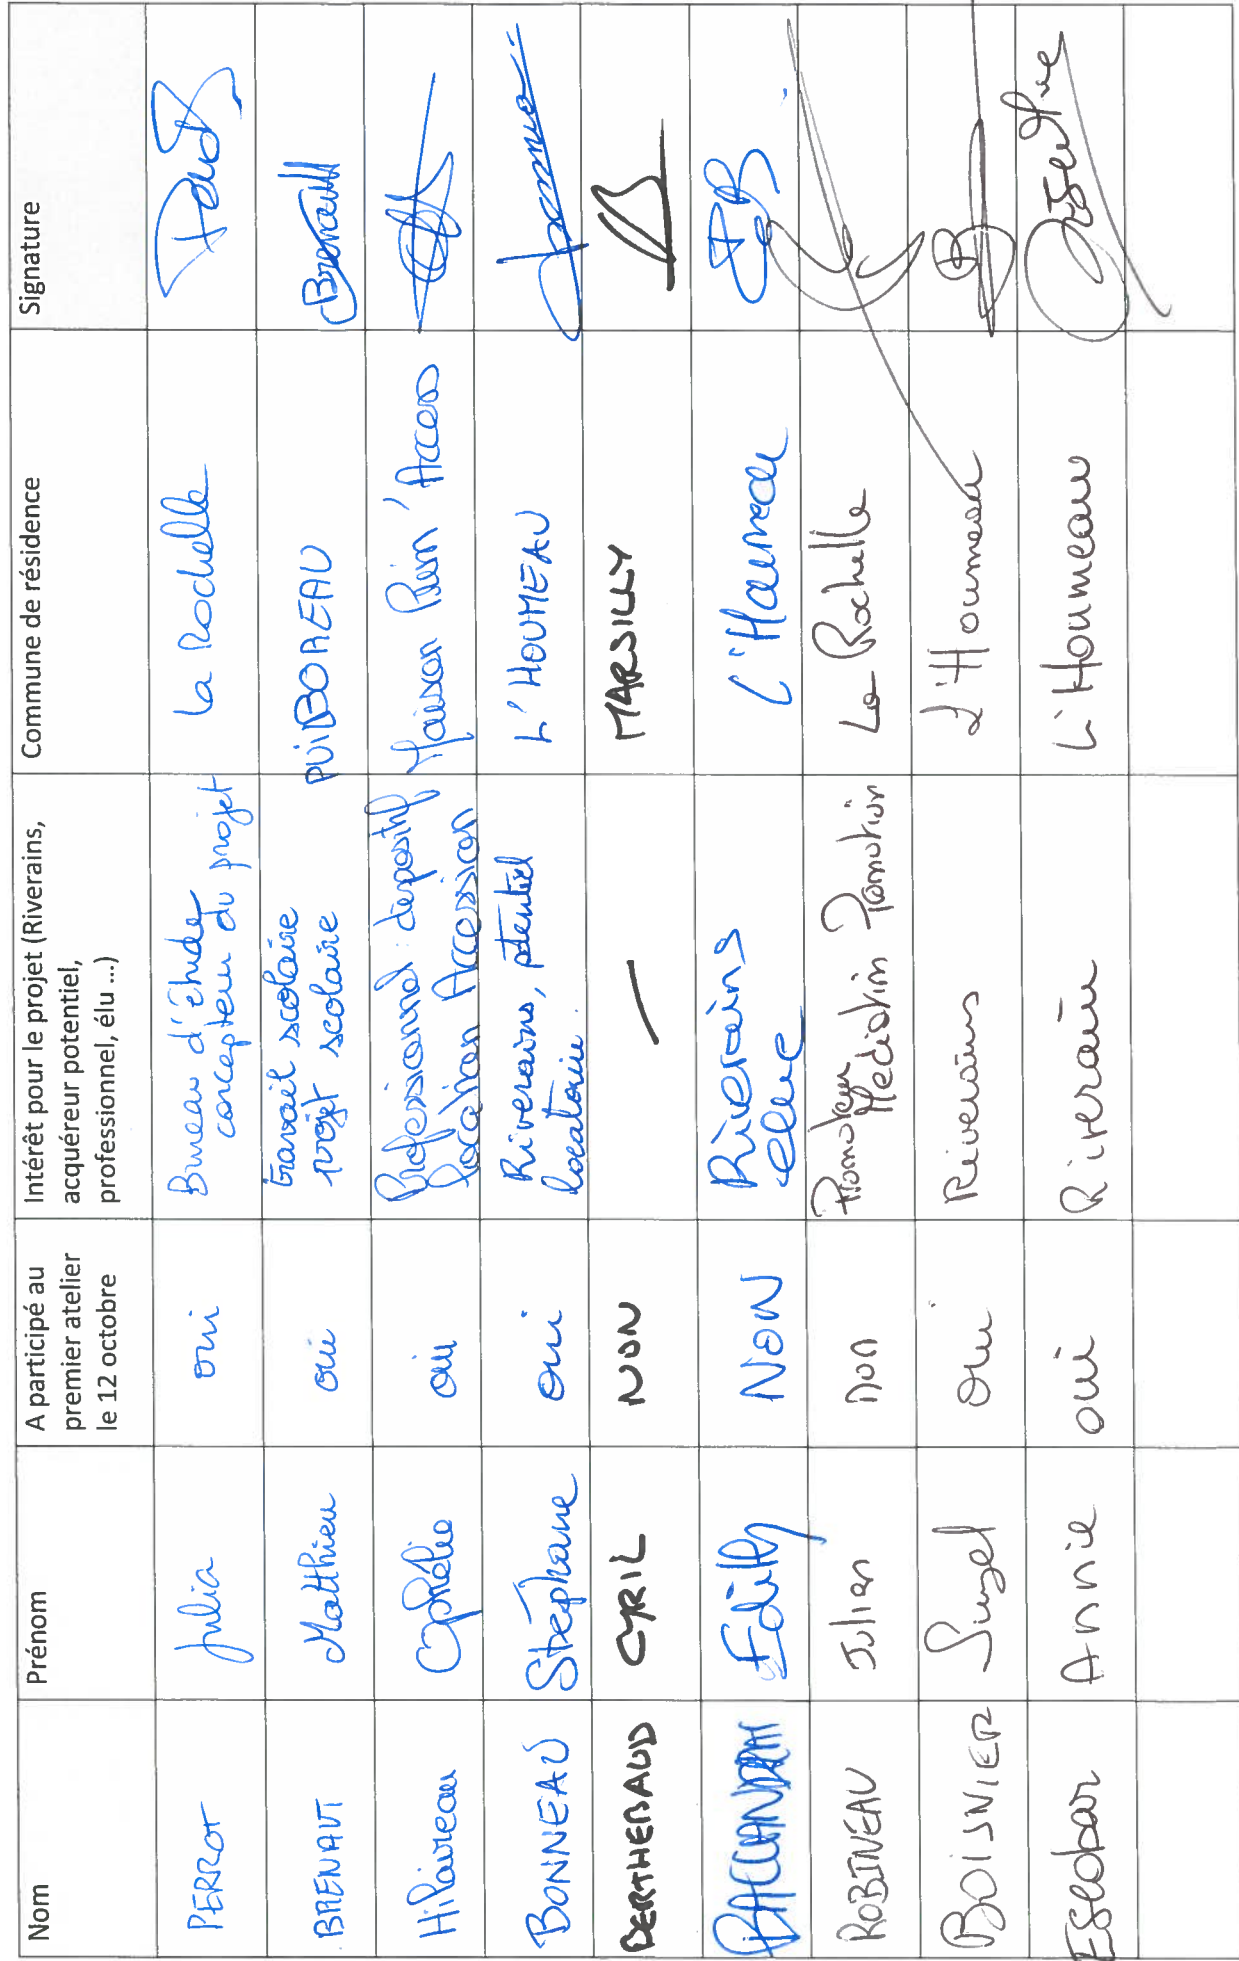 Nom
Prénom
A participé au
premier atelier
le 12 octobre
Intérêt pour le projet (Riverains,
acquéreur potentiel,
professionnel, élu ...)
Commune de résidence
Signature
PERROT
Julia
oui
Bureau d'étude
concepteur du projet
La Rochelle
BRENAUT
Matthieu
oui
travail scolaire
projet scolaire
PUiBOREAU
Hilaireau
Ophélie
oui
Professionnel : dispositif
location Accession
Maison Prim' Access
BONNEAU
Stéphane
oui
Riverains, potentiel
locataire.
L'HOUMEAU
BERTHEBAUD
CYRIL
NON
—
MARSILLY
Edith
NON
Riverains
élue
L'Houmeau
ROBINEAU
Julien
non
Promoteur
Médiatim Promotion
La Rochelle
BOISNIER
Suzel
Oui
Riverains
L'Houmeau
Escobar
Annie
oui
Riverain
L'Houmeau